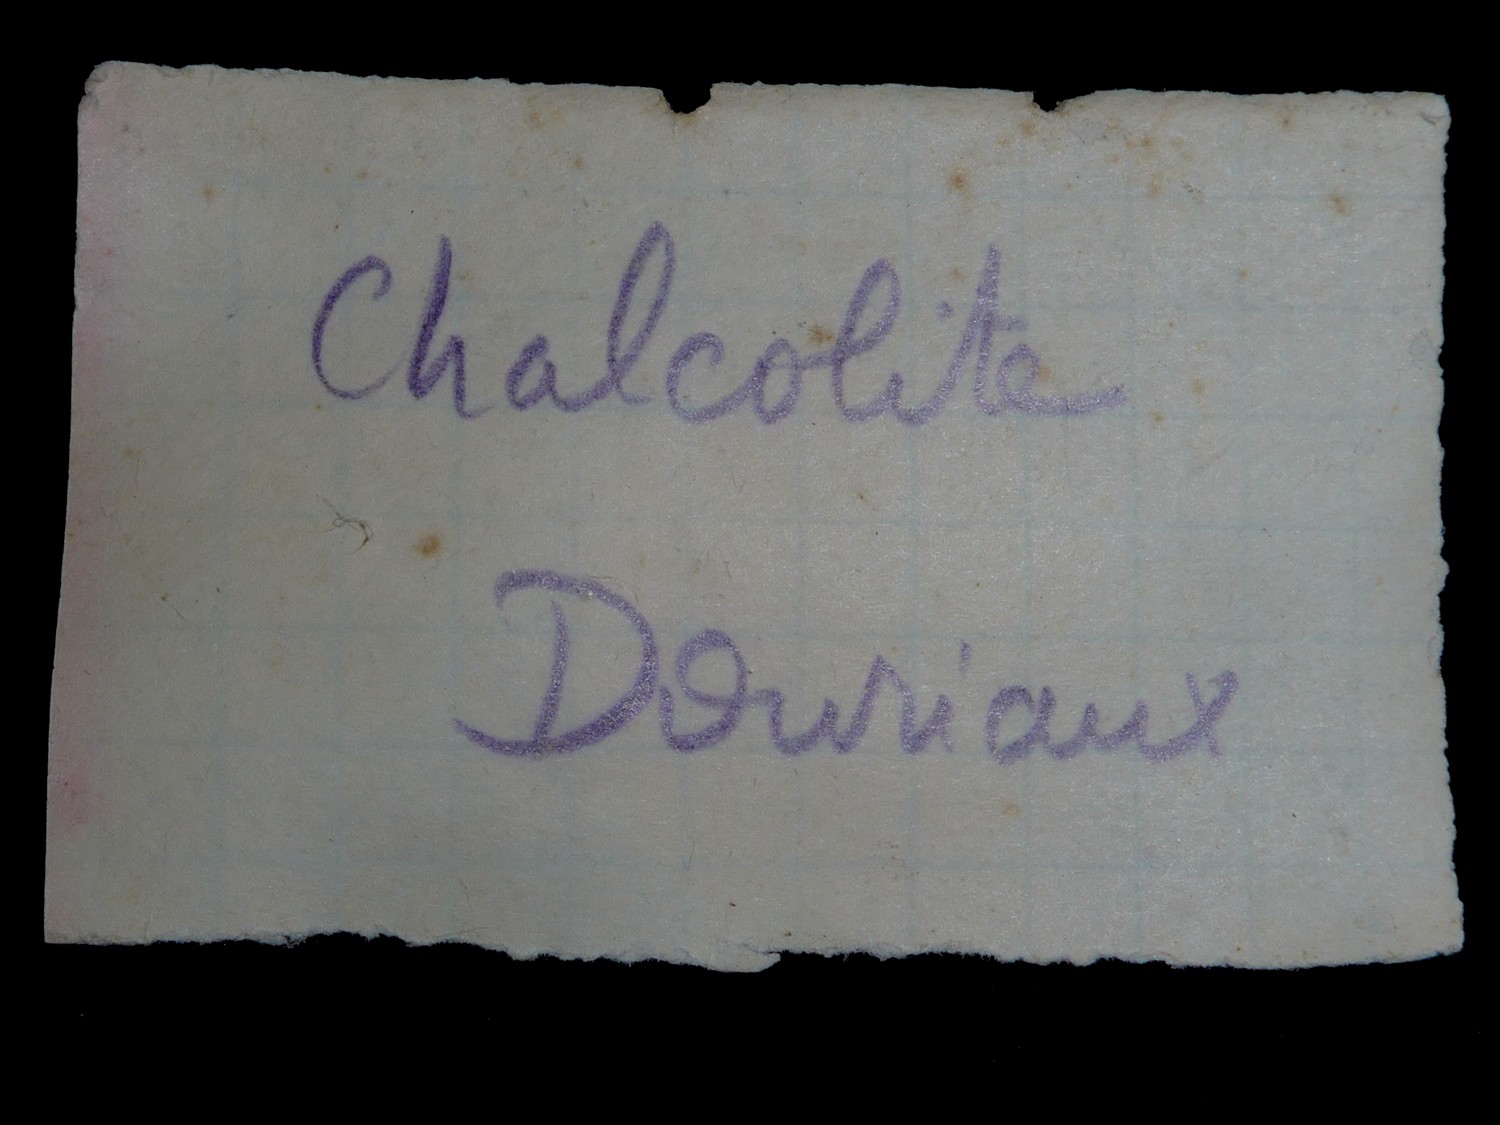 Chalcolite
Douriaux